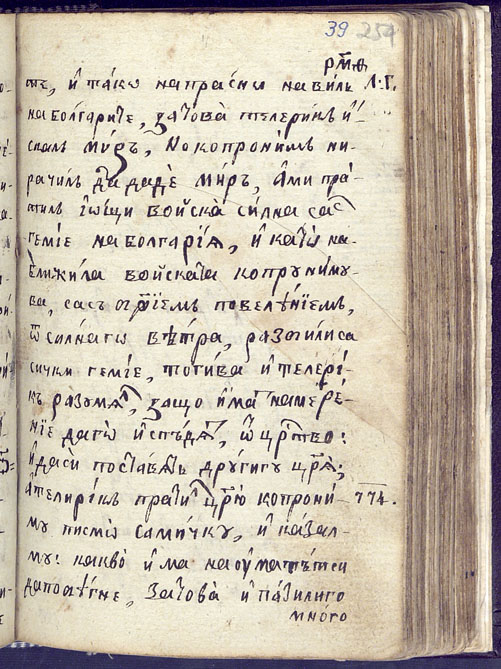 39 254
рм҃ѳ
тъ, и҆ тако напраснѡ навилъ л. г.
на болгарите, затова телерикъ и҆-
скалъ мѵръ, но копронимъ ни-
рачилъ да даде миръ, а҆ми пра-
тилъ і҆ѡщи войска силна сас
гемїе на болгарїѧ, и҆ катѡ на-
ближила войската копруниму-
ва, сасъ повелѣнїемъ,
ѿ силнагѡ вѣтра, разбилиса
сички гемїе, тогива и҆ телери-
къ разумѧл, защо и҆ма намѣре-
нїе да гѡ и҆спъдѧт, ѿ цр҃тво:
и҆ даси поставѧтъ другигу цр҃ѧ;
а҆ телирикъ прати цр҃ю копрони- 774.
му писмѡ самичку, и҆ казал-
му: какво и҆ма на оумътъси
да побѣгне, затова и҆ пазилиго
много